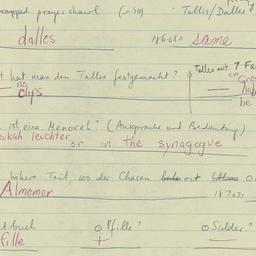 wrapped prayer shawl (1.30) Tallis/Dalles?
dalles 186.080 same
t hat man den Talles festgemacht? Talles mit 7 Fa
no clips on Gre
be
ist eine Menoreh? (Aussprache und Bedeutung)
ukah leuchter
or in the synagogue
höhere Teil, wo der Chasen ort
Almemor 187.021
tbuch Pfille? Sidder?
fille +